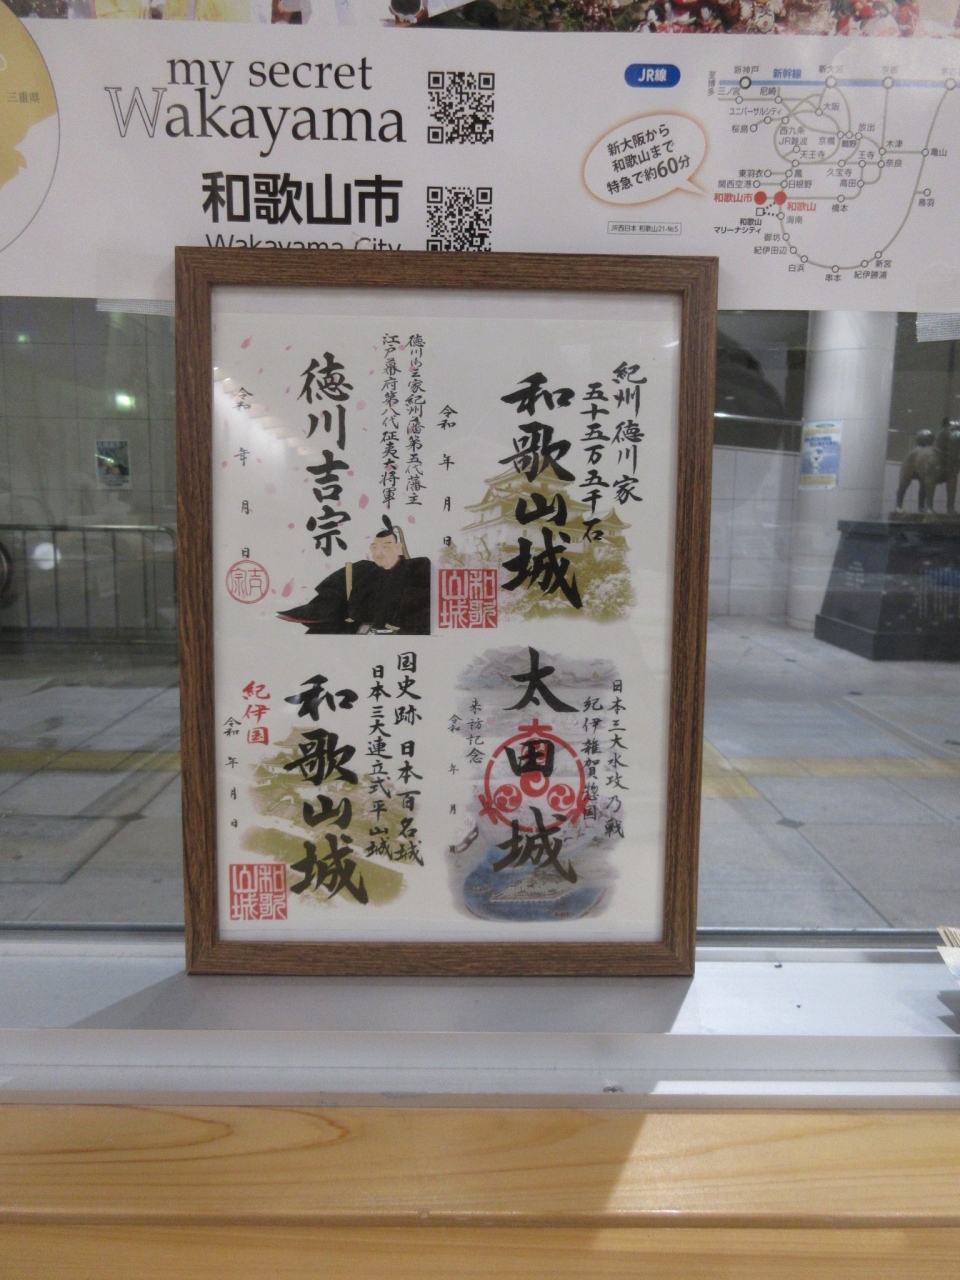 三重県
my secret
Wakayama
和歌山市
Wakayama City
JR線
新大阪から
和歌山まで
特急で約60分
JR西日本 和歌山21-№5
新神戸
新幹線
新大阪
三ノ宮
尼崎
大阪
ユニバーサルシティ
桜島
西九条
JR難波
京橋
鴫野
放出
木津
亀山
天王寺
王寺
奈良
東羽衣
鳳
久宝寺
高田
関西空港
日根野
和歌山市
和歌山
橋本
鳥羽
和歌山
マリーナシティ
海南
御坊
紀伊田辺
白浜
串本
紀伊勝浦
新宮
紀州徳川家
五十五万五千石
和歌山城
令和 年 月 日
和歌
山城
徳川御三家紀州藩第五代藩主
江戸幕府第八代征夷大将軍
徳川吉宗
令和 年 月 日
吉宗
日本三大水攻乃戦
紀伊雑賀惣国
太田城
来訪記念
令和 年 月
国史跡 日本百名城
日本三大連立式平山城
和歌山城
紀伊国
令和 年 月 日
和歌
山城